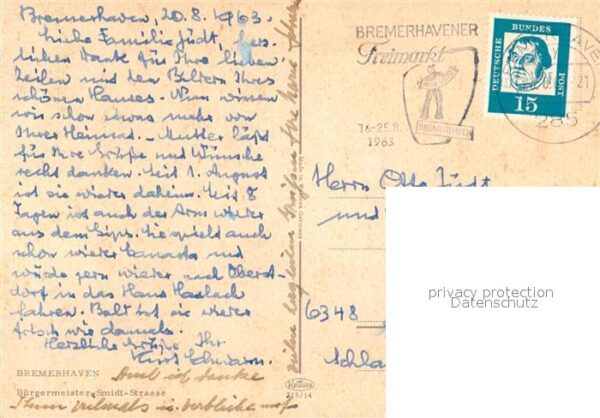 Bremerhaven, 20.8.1963.
Liebe Familie Jüdt, herz-
lichen Dank für Ihre lieben
Zeilen mit den Bildern Ihres
schönen Hauses. Nun wissen
wir schon etwas mehr von
Ihrer Heimat. – Mutter läßt
für Ihre Grüße und Wünsche
recht danken. Seit 1. August
ist sie wieder daheim. Seit 8
Tagen ist auch der Arm wieder
aus dem Gips. Sie spielt auch
schon wieder Canasta und
würde gern wieder nach Oberst-
dorf in das Haus Haslach
fahren. Bald ist sie wieder
frisch wie damals.
Herzliche Grüße Ihr
Kurt
Auch ich danke
Ihnen vielmals u.
vielen Grüßen Ihre
BREMERHAVEN
Bürgermeister-Smidt-Strasse
Made in Western Germany
KRÜGER
715/14
BREMERHAVENER
Freimarkt
16-25.8.
1963
BREMERHAVEN
DEUTSCHE BUNDES POST
15
285
Herrn Otto Jüdt
und
6348
Schla
privacy protection
Datenschutz